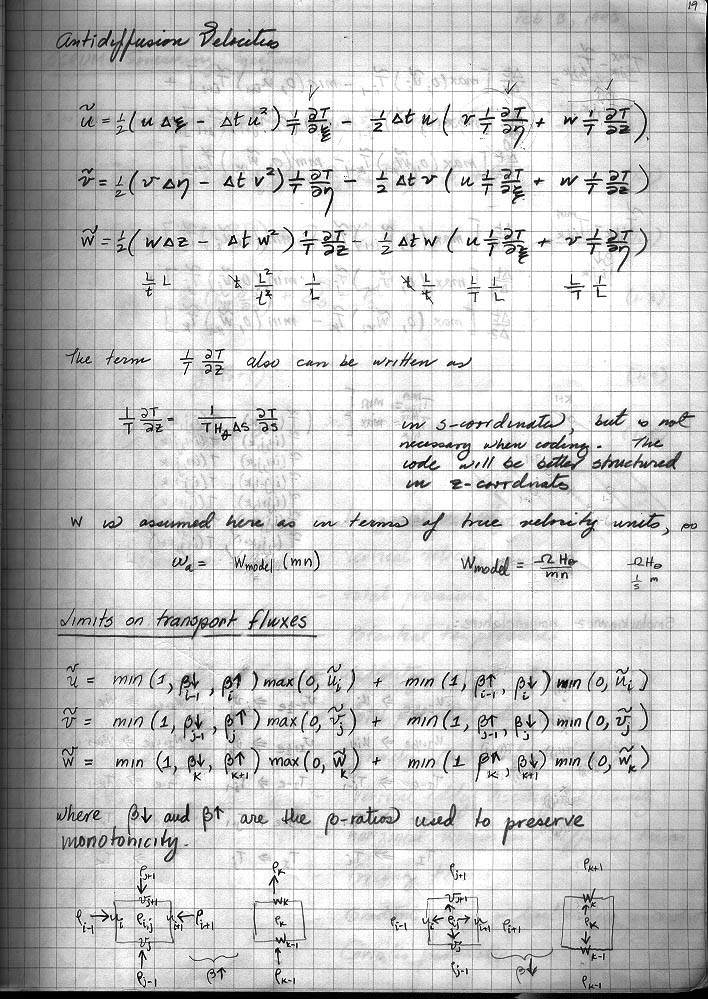 19
Antidiffusion Velocities
ũ = ½ (u Δξ − Δt u²) 1/T ∂T/∂ξ − ½ Δt u ( v 1/T ∂T/∂η + w 1/T ∂T/∂z )
ṽ = ½ (v Δη − Δt v²) 1/T ∂T/∂η − ½ Δt v ( u 1/T ∂T/∂ξ + w 1/T ∂T/∂z )
w̃ = ½ (w Δz − Δt w²) 1/T ∂T/∂z − ½ Δt w ( u 1/T ∂T/∂ξ + v 1/T ∂T/∂η )
L/t L t L²/t² 1/L t L/t L/T 1/L L/T 1/L
The term 1/T ∂T/∂z also can be written as
1/T ∂T/∂z = 1/(T Hθ Δs) ∂T/∂s
in s-coordinates, but is not
necessary when coding. The
code will be better structured
in z-coordinates
W is assumed here as in terms of true velocity units, so
ωa = Wmodel (mn) Wmodel = Ω Hθ / mn ΩHθ
1/s m
Limits on transport fluxes
ũ = min (1, β↓i-1, β↑i) max(0, ũi) + min (1, β↑i-1, β↓i) min (0, ũi)
ṽ = min (1, β↓j-1, β↑j) max(0, ṽj) + min (1, β↑j-1, β↓j) min (0, ṽj)
w̃ = min (1, β↓k, β↑k+1) max(0, w̃k) + min (1 β↑k, β↓k+1) min (0, w̃k)
where β↓ and β↑ are the β-ratios used to preserve
monotonicity.
ρj+1 ρk ρj+1 ρk+1
vj+1 wk vj+1 wk
ρi-1 → ui ρi,j ui+1 ← ρi+1 ρk ρi-1 ui ρi,j ui+1 ρi+1 ρk
vj wk-1 vj wk-1
ρj-1 β↑ ρk-1 ρj-1 β↓ ρk-1